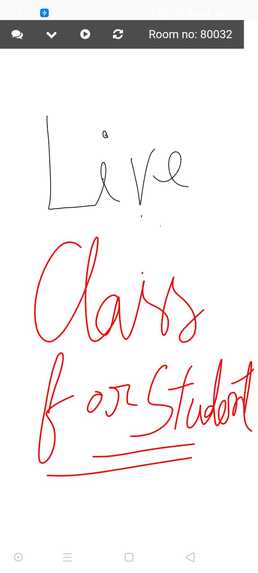 Room no: 80032
Live
Class
for Student